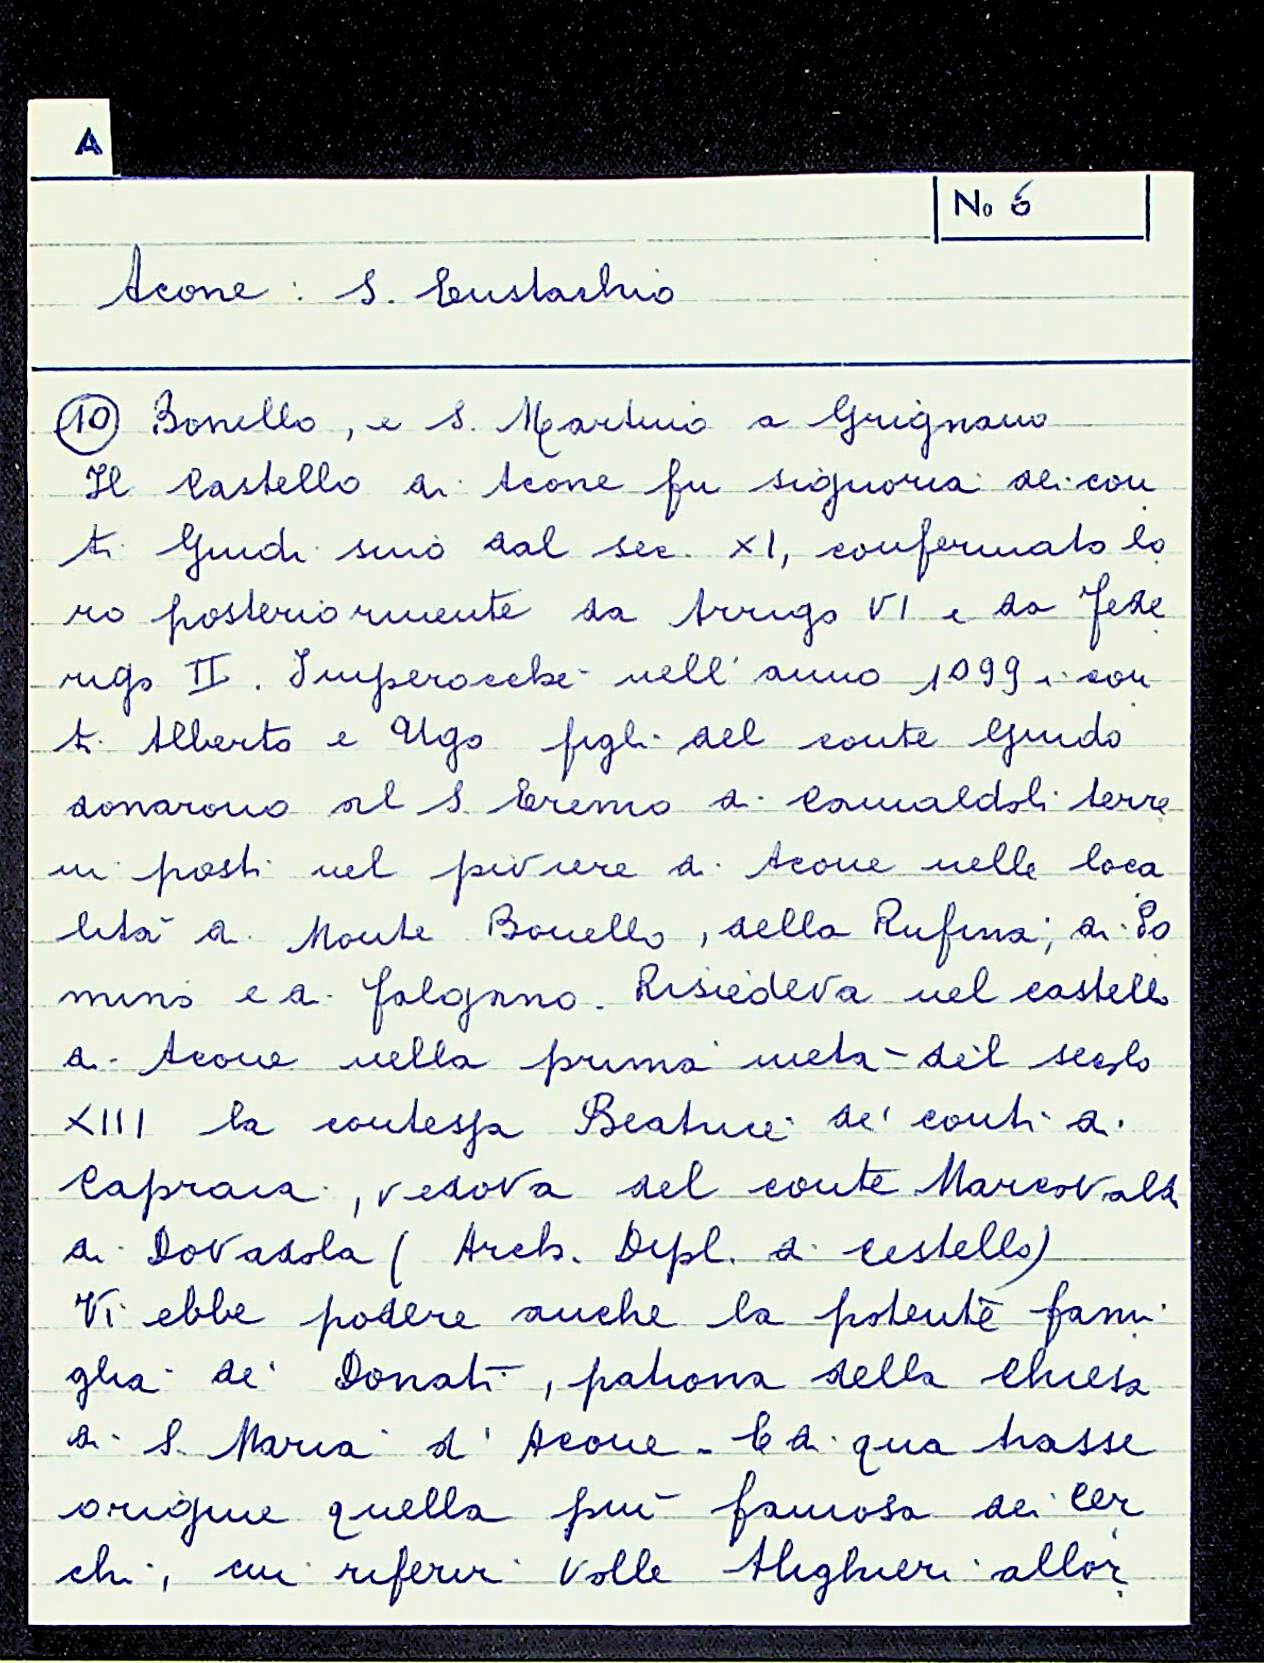 A
No 6
Acone : S. Eustachio
10 Bonello, e S. Martino a Grignano
Il Castello di Acone fu signoria dei con
ti Guidi sino dal sec. XI, confermato lo
ro posteriormente da Arrigo VI e da Fede
rigo II. Imperocché nell'anno 1099 i con
ti Alberto e Ugo figli del conte Guido
donarono al S. Eremo di Camaldoli terre
ni posti nel piviere di Acone nelle loca
lità di Monte Bonello, della Rufina, di Po
mino e di Falgano. Risiedeva nel castello
di Acone nella prima metà del secolo
XIII la contessa Beatrice de' conti di
Capraia, vedova del conte Marcovaldo
di Dovadola (Arch. Dipl. di Cestello)
Vi ebbe podere anche la potente fami
glia de' Donati, patrona della Chiesa
di S. Maria d'Acone. E di qua trasse
origine quella più famosa dei Cer
chi, cui riferir volle Alighieri allor